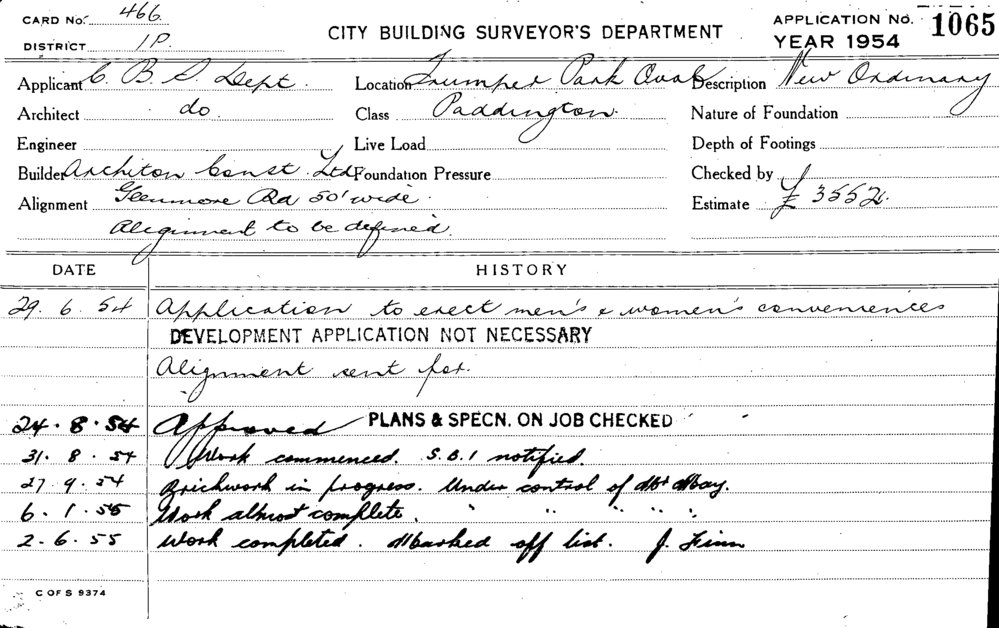 CARD NO. 466
DISTRICT 1P.
CITY BUILDING SURVEYOR'S DEPARTMENT
APPLICATION NO. 1065
YEAR 1954
Applicant C. B. S. Dept. Location Trumper Park Oval Description New Ordinary
Architect do. Class Paddington. Nature of Foundation
Engineer Live Load Depth of Footings
Builder Architon Const. Ltd. Foundation Pressure Checked by
Alignment Glenmore Rd 50' wide. Estimate £ 3552.
Alignment to be defined.
DATE HISTORY
29. 6. 54 Application to erect men's & women's conveniences
DEVELOPMENT APPLICATION NOT NECESSARY
Alignment sent for.
24. 8. 54 Approved PLANS & SPECN. ON JOB CHECKED
31. 8. 54 Work commenced. S.B.1 notified.
27. 9. 54 Brickwork in progress. Under control of Mr May.
6. 1. 55 Work almost complete. " " " " "
2. 6. 55 Work completed. Marked off list. J.
C OF S 9374